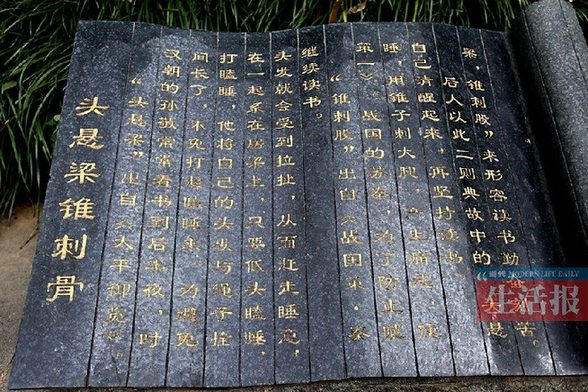 头悬梁锥刺骨
“头悬梁”出自《太平御览》，
汉朝的孙敬常常看书到后半夜，时
间长了，不免打起瞌睡来。为避免
打瞌睡，他将自己的头发与绳子拴
在一起系在房梁上，只要低头瞌睡，
头发就会受到拉扯，从而赶走睡意，
继续读书。
“锥刺股”出自《战国策·秦
一》。战国的苏秦，为了防止瞌
睡，用锥子刺大腿，产生痛觉，使
自己清醒起来，再坚持读书。
后人以此二则典故中的悬
梁，锥刺股”来形容读书勤苦。
MODERN LIFE DAILY
生活报